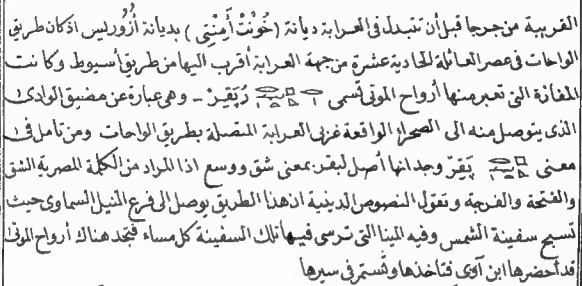 القريبة من جرجا قبل أن تتبدل في العرابة ديانة (خُونْتْ أَمِنْتِى) بديانة أُزُوريس اذ كان طريق
الواحات في عصر العائلة الحادية عشرة من جهة العرابة أقرب اليها من طريق أسيوط وكانت
المفازة التى تعبر منها أرواح الموتى تسمى رَيَقِرْ - وهى عبارة عن مضيق الوادى
الذى يتوصل منه الى الصحراء الواقعة غربى العرابة المتصلة بطريق الواحات ومن تأمل فى
معنى يَقِرّ وجد انها أصل لبقر بمعنى شق ووسع اذ المراد من الكلمة المصرية الشق
والفتحة والفرجة وتقول النصوص الدينية ان هذا الطريق يوصل الى فرع النيل السماوى حيث
تسبح سفينة الشمس وفيه المينا التى ترسى فيها تلك السفينة كل مساء فتجد هناك أرواح الموتى
قد أحضرها ابن آوى فتاخذها وتستمر فى سيرها